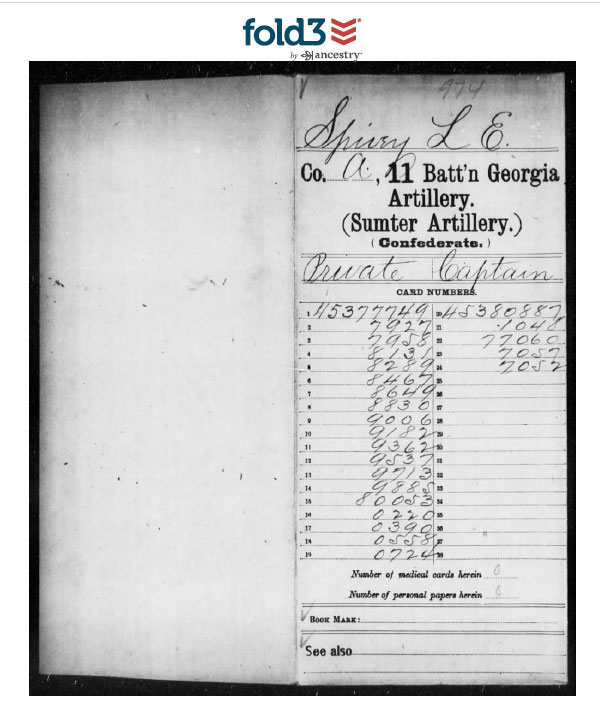 fold3
by ancestry
974
Spivey L E.
Co. A, 11 Batt'n Georgia
Artillery.
(Sumter Artillery.)
(Confederate.)
Private Captain
CARD NUMBERS.
1 45377749 20 45380887
2 7927 21 1048
3 7958 22 77060
4 8131 23 7057
5 8289 24 7052
6 8467 25
7 8649 26
8 8830 27
9 9006 28
10 9182 29
11 9362 30
12 9537 31
13 9713 32
14 9885 33
15 80053 34
16 0220 35
17 0390 36
18 0558 37
19 0724 38
Number of medical cards herein 0
Number of personal papers herein 0
BOOK MARK:
See also